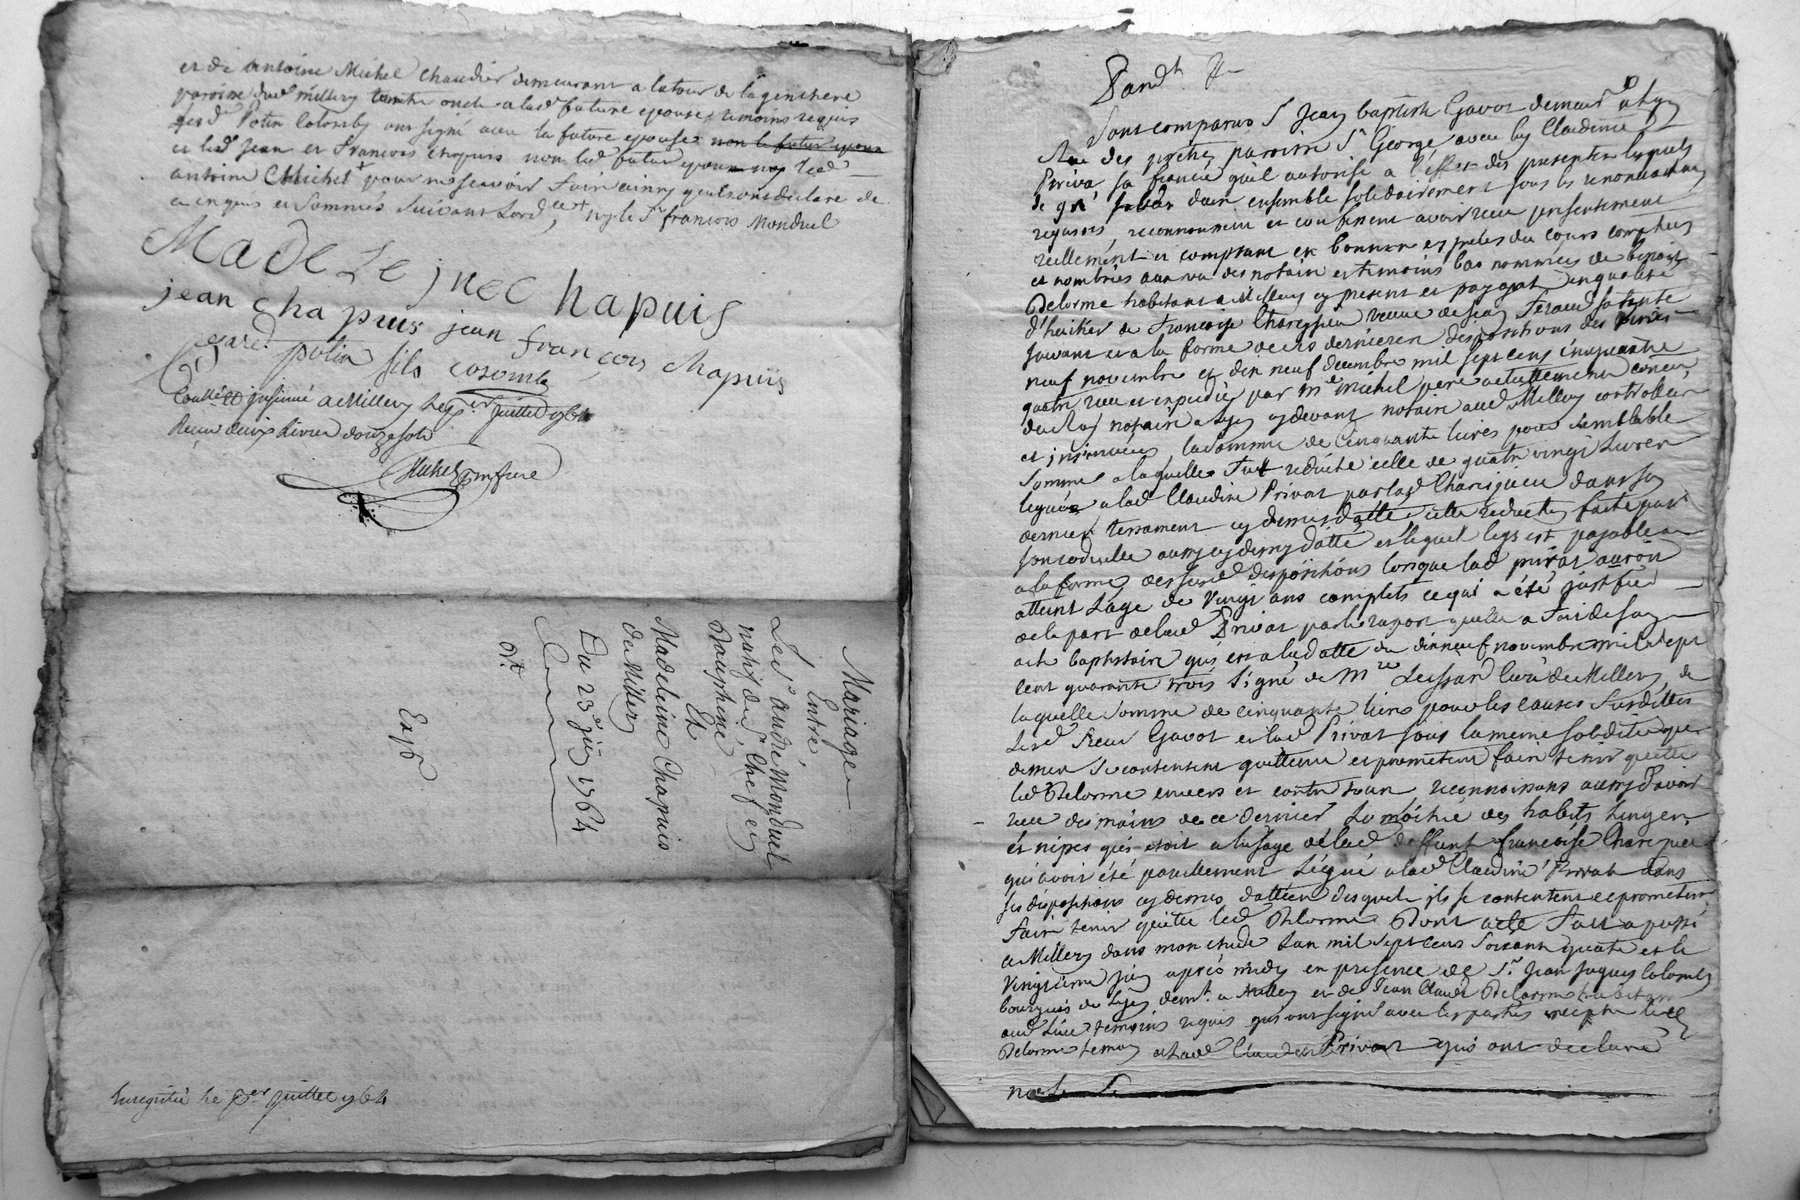 et de antoine Michel chaudier demeurant a la tour de la
paroisse dud millery oncle a lad future epouse temoins requis
Lesd. Potin Colomby ont signé avec la future epouse non le futur epoux
et led jean et francois chapuis non led futur epoux ny led
antoine Michel pour ne scavoir faire ainsy qu'ils ont declaré de
ce enquis et sommés suivant Lord ny le Sr francois Monduel
MadeLeine Chapuis
jean chapuis jean françois chapuis
potin fils colomb
insinué a Millery le per juillet 1764
Reçu deux livres douze sols
Michel
Mariage
Entre
Led. andré Monduel
natif de St Chef en
Dauphiné
Et
Madeleine Chapuis
de Millery
Du 23e juin 1764
Exp
Enregistré le per juillet 1764
Pardt
Sont comparus Sr jean baptiste Gavot demeurt a Lyon
Rue des prêtres paroisse St George avec lui Claudine
Privat sa fiancée qu'il autorise a l'effet des presentes lesquels
de gré ensemble solidairement sous les renonciations
requises reconnoissent et confessent avoir reçu presentement
reellement et comptant en bonnes espèces du cours comptées
et nombrées aux vu des notaire et temoins bas nommés de benoist
Delorme habitant a Millery cy present et payant en qualité
d'heritier de francoise Charezieu veuve de jean sa tante
suivant et a la forme de ses dernieres dispositions des
neuf novembre et dix neuf decembre mil sept cent cinquante
quatre recu et expediés par me Michel pere actuellement conseiller
du Roy notaire a Lyon cy devant notaire aud Millery controllées
et insinuées, la somme de cinquante livres pour semblable
somme a laquelle fut reduite celle de quatre vingt Livres
leguée a lad Claudine Privat par lad Charezieu dans son
dernier testament cy dernier datté cette reduction faite par
son codicille aussy cy dernier datté et lequel legs est payable
a la forme des susd dispositions lorsque lad privat auroit
atteint l'age de vingt ans complets ce qui a été justifié
de la part de lad Privat par le raport qu'elle a fait de son
acte baptistaire qui est a la datte du dix neuf novembre mil sept
cent quarante trois signé de Mre Leissan curé de Millery, de
laquelle somme de cinquante livres pour les causes susdittes
Lesd. sieur Gavot et lad Privat sous la meme solidité que
dessus se contentent quittent et promettent faire tenir quitte
led Delorme envers et contre tous reconnoissans aussy d'avoir
reçu des mains de ce dernier La moitié des habits Linges
et nipes qui etoit a l'usage de lad deffunte francoise Charezieu
qui avoit été pareillement Légué a lad Claudine Privat dans
ses dispositions cy dernier dattées desquels ils se contentent et promettent
faire tenir quitte led Delorme Dont acte fait et passé
a Millery dans mon etude Lan mil sept cens soixante quatre et le
vingtieme juin après midy en presence de Sr Jean Jaques Colomby
bourgeois de Lyon demt a Millery et de Jean Claude Delorme habitant
aud Lieu temoins requis qui ont signé avec les parties excepté led
Delorme temoin et lad Claudine Privat qui ont declaré